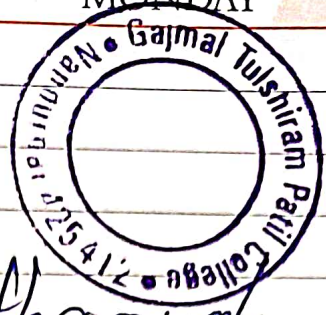 MONDAY
Gajmal Tulshiram Patil College
Nandurbar 425412